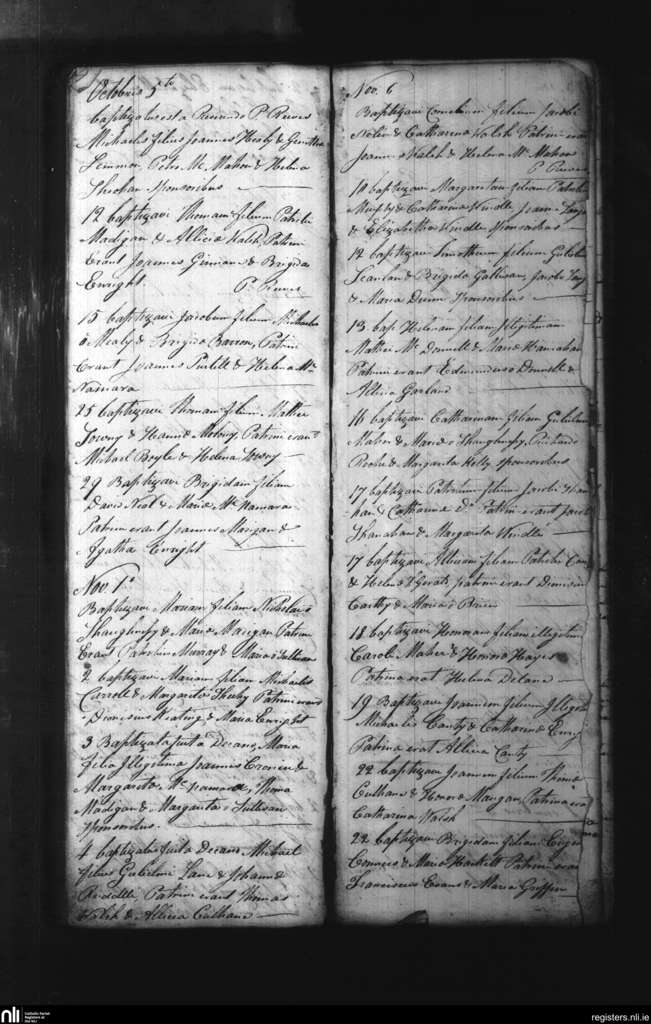 Octobris 5to
baptizatus est a Revdo P Reeves
Michaelis filius Joannes Healy &
Lennon Petro Mc Mahon & Helena
Sheehan sponsoribus
12 baptizavi Thomam filium Patritii
Madigan & Allicia Walsh, Patrini
Erant Joannes & Brigida
Enright P. Reeves
15 baptizavi Jacobum filium Michaelis
o Mealy & Brigida Barron, Patrini
Erant Joannes Purtill & Helena Mc
Namara
25 baptizavi Thomam filium Mathei
Towny & Moloney, Patrini erant
Michael Boyle & Helena Towny
29 Baptizavi Brigidam filiam
David Neal & Maria Mc Namara
Patrini erant Joannes Mangan &
Agatha Enright
Nov. 1o
Baptizavi Mariam filiam Nicholai o
Shaughnessy & Maria Mangan Patrini
Erant Murray & Maria o Sullivan
2 baptizavi Mariam filiam Michaelis
Carroll & Margarita Sheehy Patrini erant
Dionisius Keating & Maria Enright
3 Baptizata Maria
filia Illegitima Joannis Cronin &
Margarita Mc Namara, Thoma
Madigan & Margarita o Sullivan
sponsoribus.
4 baptizatus Michael
filius Gulielmi Lane & Johanna
Riddle, Patrini erant Thomas
Walsh & Allicia Culhane
Nov. 6
Baptizavi Cornelium filium Jacobi
Nolan & Catharina Walsh Patrini erant
Joannes Walsh & Helena Mc Mahon
P Reeves
10 baptizavi Margaritam filiam Patritii
Murphy & Catharina Windle Joanne
& Elizabetha Windle Sponsoribus
12 baptizavi Timotheum filium Gulielmi
Scanlan & Brigida Gallivan, Jacobo
& Maria Sponsoribus
13 bap Helenam filiam Illegitimam
Mathei Mc Donnell & Maria Hanrahan
Patrini erant Edmundus o Donnell &
Allicia Garland
16 baptizavi Catharinam filiam Gulielmi
Maher & Maria o Shaughnessy, Richardo
Roche & Margarita Kelly sponsoribus
17 baptizavi Patritium filium Jacobi
& Catharina Do Patrini erant Jacobus
Shanahan & Margarita Windle
17 baptizavi Alliciam filiam Patritii
& Helena patrini erant Dionisius
Carthy & Maria o Brien
18 baptizavi Honoram filiam illegitimam
Caroli Maher & Honora Hayes
Patrina erat Helena Delane
19 Baptizavi Joannem filium Illegitimum
Michaelis Canty & Catharina
Patrina erat Allicia Canty
22 baptizavi Joannem filium Thoma
Culhane & Honora Mangan, Patrina erat
Catharina Walsh
22 baptizavi Brigidam filiam
Connors & Maria Hackett Patrini erant
Franciscus Evans & Maria Griffin
nli
registers.nli.ie